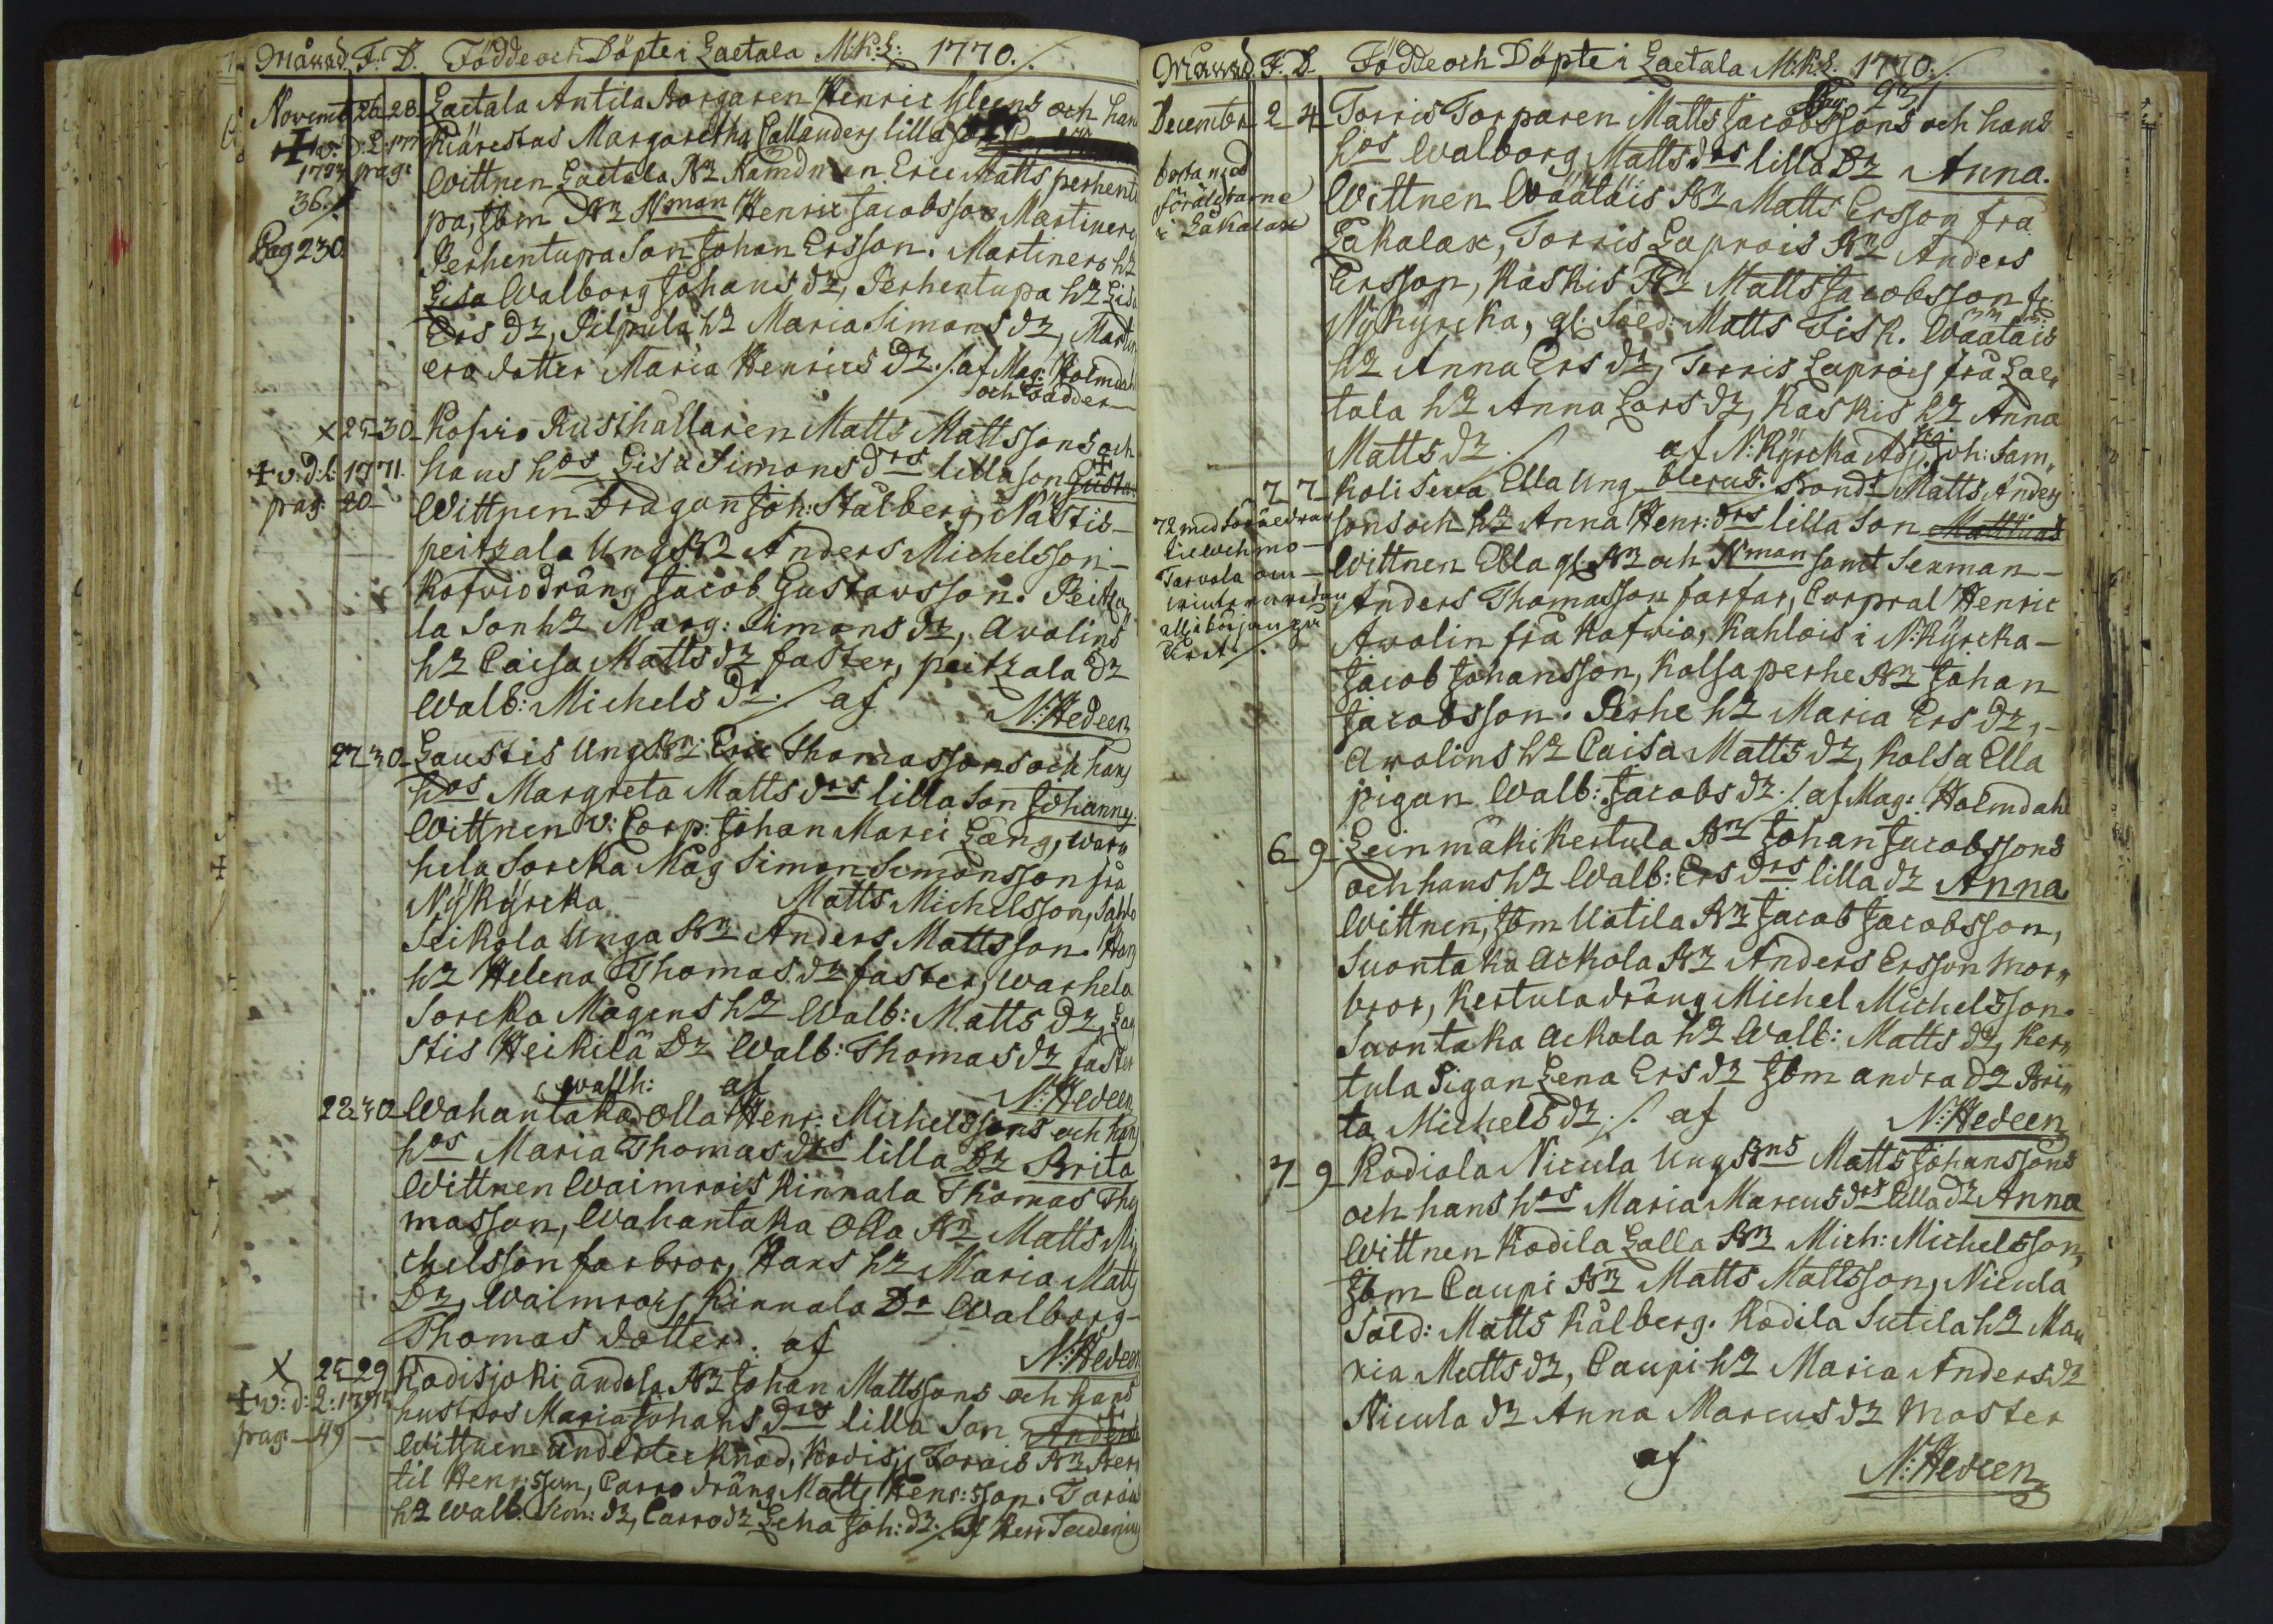 Månad. F. D. Födde och Döpte i Laetala M:K:L: 1770./.
Novemb 26 28 Laetala Antila Borgaren Henric Gleens och hans
Kiärestas Margaretha Callanders lilla
w. d: L: 177
1773 pag: Wittnen Laetala Bn Nämdman Eric Matts perhentu
36./. pa, Ibm Bn Nman Henric Jacobsson Martinero
Pag 230. Perhentupa Son Johan Ersson. Martinero h2
Lisa Walborg Johans d2, Perhentupa h2 Lisa
Ers d2, Pilpula h2 Maria Simons d2, Martin
ero dotter Maria Henrics D2./. af Mag: Holmdahl
och Fadder
x 25 30 Kofvio Rusthållaren Matts Mattssons och
+ v: d: L: 1771. hans hos Lisa Simons drs lilla son Gusta
pag: 20 Wittnen Dragon Joh: Stålberg, Nästis-
peitzala Ung Bn Anders Michelsson-
Kofvio dräng Jacob Gustavsson. Peitza
la Son h2 Marg: Simons d2, Avolins
h2 Caisa Matts d2 faster, peitzala D2
Walb: Michels D2./. af N: Hedeen
27 30 Laustis Ung Bn Eric Thomassons och hans
hos Margreta Matts drs lilla Son Johannes.
Wittnen v: Corp: Johan Marci Lång, warv
hela Sorcka Måg Simon Simonsson frå
Nykyrcka Matts Michelsson, Sahlo
Seikola Unga Bn Anders Mattsson. Hans
h2 Helena Thomas d2 faster, warhela
Sorcka Mågens h2 Walb: Matts D2, Lau
stis Heikilä D2 Walb: Thomas d2 faster
wallh: af N: Hedeen
28 30 Wahantaka Olla Henr: Michelssons och hans
hos Maria Thomas drs lilla D2 Brita
Wittnen Waimrois Kinnala Thomas Tho
masson, Wahantaka Olla Bn Matts Mi
chelsson farbror, Hans h2 Maria Matts
D2, Waimrois Kinnala Dr Walborg-
Thomas dotter. af N: Hedeen
x 25 29 Kodisjoki andela Bn Johan Mattssons och hans
+ w: d: 2: 1771 hustros Maria Johans drs lilla Son Anders
pag: 49 Wittnen undertecknad, Kodisj: Torvois Bn Ber
til Henr:sson, Carro dräng Matts Henr:sson. Torvois
h2 Walb: Sim: d2, Carro d2 Lena Joh: d2./. af
Månad. F. D. Födde och Döpte i Laetala M:K:L: 1770./.
Pag: 231
December 2 4 Torris Torparen Matts Jacobssons och hans
hos Walborg Matts drs lilla D2 Anna.
föräldrarne Wittnen Wäätäis Bn Matts Ersson frå
i Lakalax Lakalax, Torris Laprois Bn Anders
Ersson, Kaskis Bn Matts Jacobsson fr
Nykyrcka, gl. Sold: Matts Fisk. Wäätäis
h2 Anna Ers d2, Torris Laprois frå Lae„
tala h2 Anna Lars d2, Kaskis h2 Anna
Matts d2./. af N: Kyrcka Adj: Joh: Sam„
7 7 Koli Seva Ella Ung blerus. Bonds Matts Anders
72 med föräldrar sons och h2 Anna Henr: drs lilla Son Matthias
Wittnen Ella gl: Bn och Nman samt Sexman-
Anders Thomasson farfar, Corpral Henric
Avolin frå Kofvio, Kahlois i N: Kyrcka-
Jacob Johansson, Kolsa perhe Bn Johan
Jacobsson. Perhe h2 Maria Ers D2,-
Avolins h2 Caisa Matts d2, Kolsa Ella
pigan Walb: Jacobs d2./. af Mag: Holmdahl
6 9 Leinmäki Kertula Bn Johan Jacobssons
och hans h2 Walb: Ers drs lilla d2 Anna
Wittnen, Ibm Uotila Bn Jacob Jacobsson,
Suontaka Ackola Bn Anders Ersson mor„
bror, Kertula dräng Michel Michelsson.
Suontaka Ackola h2 Walb: Matts d2, Ker„
tula Pigan Lena Ers d2 Ibm andra d2 Bri„
ta Michels d2./. af N: Hedeen
7 9 Kodiala Nicula Ung Bns Matts Johanssons
och hans hos Maria Marcus drs lilla d2 Anna
Wittnen Kodila Lalla Bn Mich: Michelsson,
Ibm Caupi Bn Matts Mattsson, Nicula
Sold: Matts Kålberg. Kodila Sutila h2 Ma„
ria Matts d2, Caupi h2 Maria Anders d2
Nicula d2 Anna Marcus d2 moster
af N: Hedeen